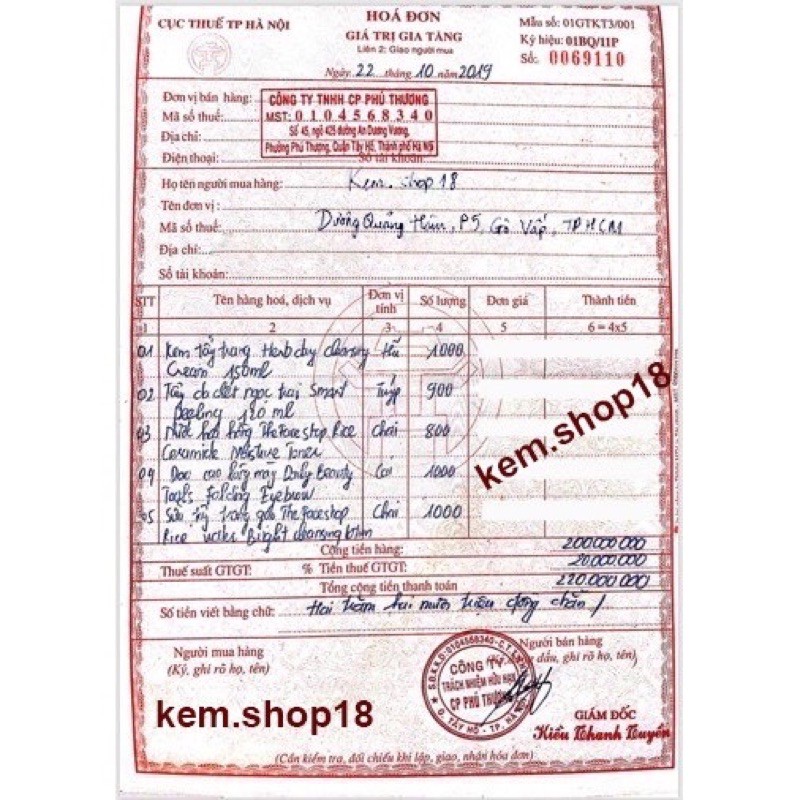 CỤC THUẾ TP HÀ NỘI
HOÁ ĐƠN
GIÁ TRỊ GIA TĂNG
Liên 2: Giao người mua
Ngày 22 tháng 10 năm 2019
Mẫu số: 01GTKT3/001
Ký hiệu: 01BQ/11P
Số: 0069110
Đơn vị bán hàng: CÔNG TY TNHH CP PHÚ THƯƠNG
Mã số thuế: MST: 0104568340
Địa chỉ: Số 45, ngõ 425 đường An Dương Vương,
Phường Phú Thượng, Quận Tây Hồ, Thành phố Hà Nội
Điện thoại: Số tài khoản:
Họ tên người mua hàng: Kem.shop18
Tên đơn vị:
Mã số thuế: Dương Quảng Hàm, P5, Gò Vấp, TPHCM
Địa chỉ:
Số tài khoản:
STT Tên hàng hoá, dịch vụ Đơn vị tính Số lượng Đơn giá Thành tiền
1 2 3 4 5 6 = 4x5
01 Kem tẩy trang Herb day cleansing Hũ 1000
Cream 150ml
02 Tẩy da chết ngọc trai Smart Tuýp 900
Peeling 120 ml
03 Nước hoa hồng The Face shop Rice Chai 800
Ceramide Moisture Toner
04 Dao cạo lông mày Daily Beauty Cái 1000
Tools folding Eyebrow
05 Sữa tẩy trang gạo The Face shop Chai 1000
Rice water Bright cleansing lotion
kem.shop18
Cộng tiền hàng: 200000000
Thuế suất GTGT: % Tiền thuế GTGT: 20000000
Tổng cộng tiền thanh toán 220.000000
Số tiền viết bằng chữ: Hai trăm hai mươi triệu đồng chẵn /
Người mua hàng
(Ký, ghi rõ họ, tên)
Người bán hàng
dấu, ghi rõ họ, tên)
S.Đ.K.D:0104568340-C.T
CÔNG TY
TRÁCH NHIỆM HỮU HẠN
CP PHÚ THƯƠNG
Q. TÂY HỒ - TP. HÀ NỘI
kem.shop18
GIÁM ĐỐC
Kiều Thanh Huyền
(Cần kiểm tra, đối chiếu khi lập, giao, nhận hóa đơn)